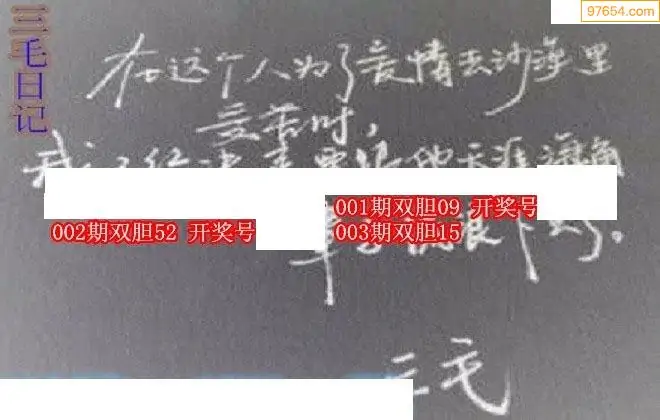 三毛日记
97654.com
在这个人为了爱情去沙漠里
受苦时,
我
001期双胆09 开奖号
002期双胆52 开奖号
003期双胆15
下去了。
三毛